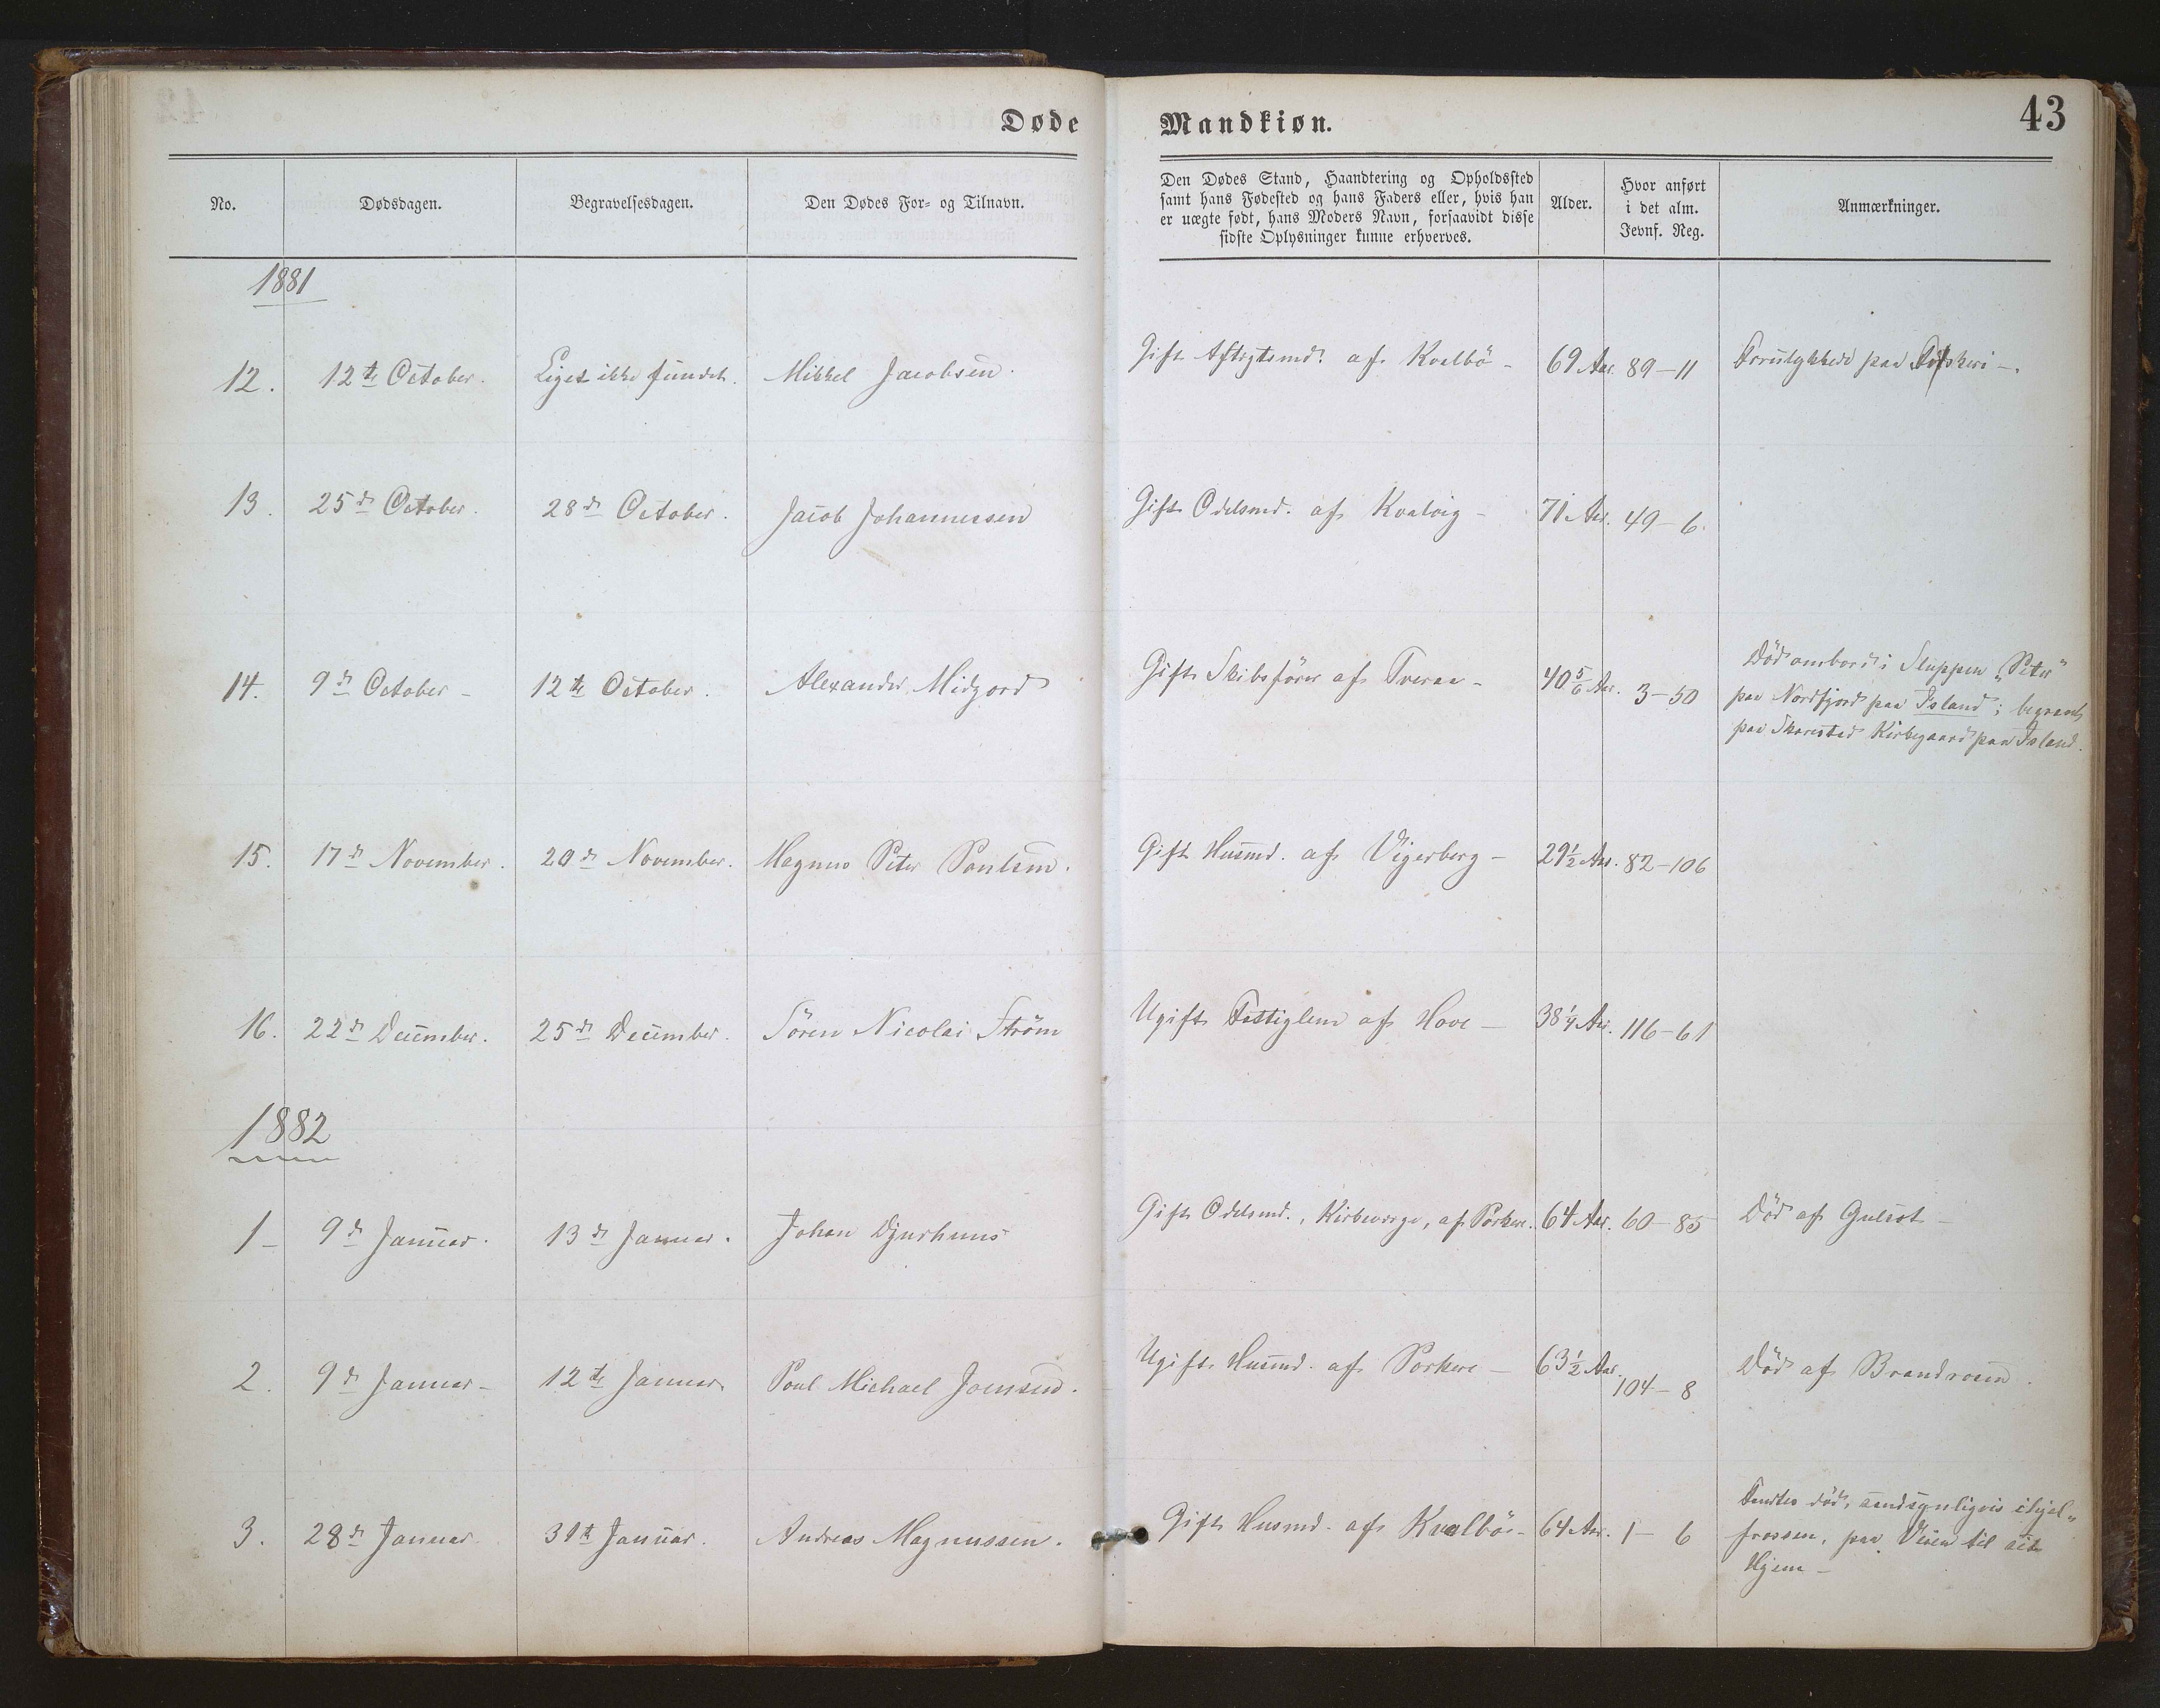 Døde Mandkiøn. 43
No. Dødsdagen. Begravelsesdagen. Den Dødes For- og Tilnavn.
Den Dødes Stand, Haandtering og Opholdssted
samt hans Fødested og hans Faders eller, hvis han
er uægte født, hans Moders Navn, forsaavidt disse
sidste Oplysninger kunne erhverves.
Alder.
Hvor anført
i det alm.
Jevnf. Reg.
Anmærkninger.
1881
12. 12te October. Liget ikke fundet. Mikkel Jacobsen. Gift Aftægtsmd. af Kvalbö - 69 Aar. 89-11 Forulykkede paa Fiskeri -.
13. 25de October. 28de October. Jacob Johannessen Gift Odelsmd. af Kvalvig - 71 Aar. 49-6.
14. 9de October - 12te October. Alexander Midgord Gift Skibsförer af Tveraa - 40 5/6 Aar. 3-50 Död ombord i Sluppen „Peter"
paa Nordfjord paa Island; begravet
paa Skorestad Kirkegaard paa Island.
15. 17de November. 20de November. Magnus Peter Poulsen. Gift Husmd. af Vigerberg - 29 1/2 Aar. 82-106
16. 22de December. 25de December. Sören Nicolai Ström Ugift af Hove - 38 1/4 Aar. 116-61
1882
1- 9de Januar. 13de Januar. Johan Djurhuus Gift Odelsmd., Kirkeværge, af Porkere. 64 Aar. 60-85 Död af Gulsot -
2. 9de Januar - 12te Januar. Poul Michael Joensen. Ugift Husmd. af Porkere - 63 1/2 Aar. 104-8 Död af Brandrosen.
3. 28de Januar. 31te Januar. Andreas Magnussen. Gift Husmd. af Kvalbö - 64 Aar. 1-6 Fandtes död, sandsynligvis ihjel-
frossen, paa Veien til sit
Hjem -